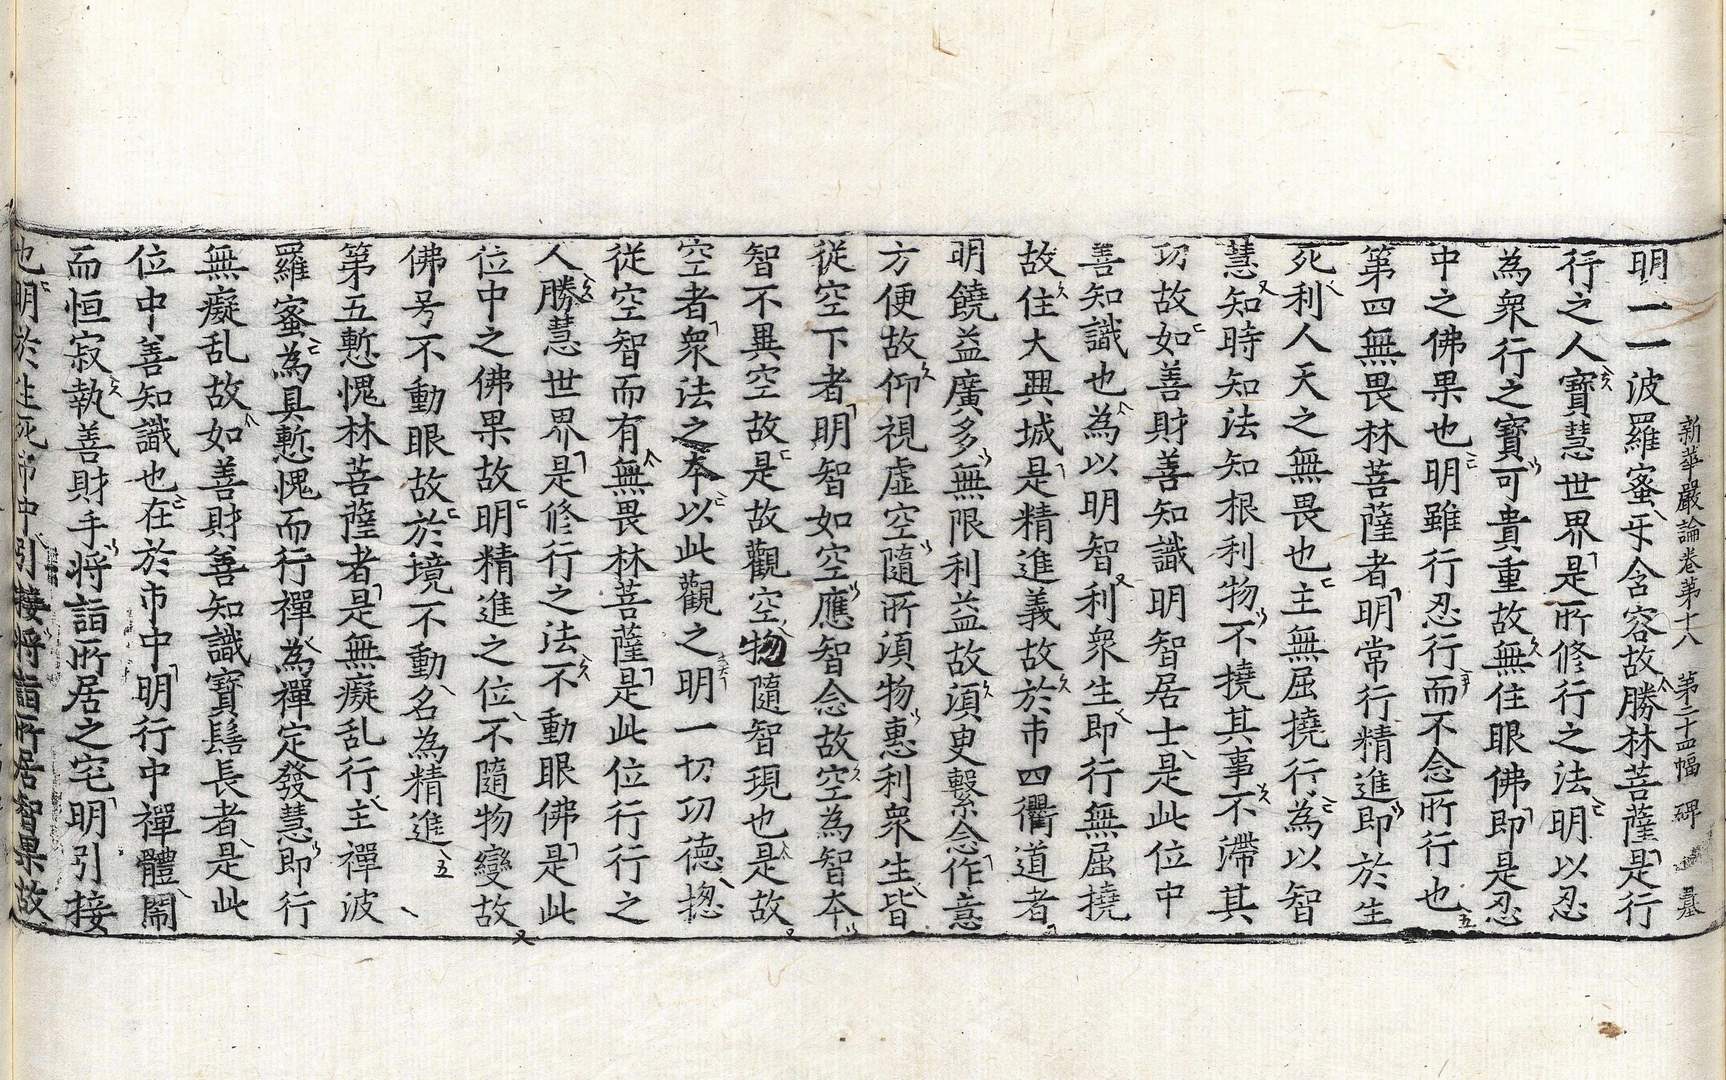 新華嚴論卷第十八 第二十四幅 碑
明一一波羅蜜牙含容故勝林菩薩是行
行之人寶慧世界是所修行之法明以忍
為衆行之寶可貴重故無住眼佛即是忍
中之佛果也明雖行忍行而不念所行也
第四無畏林菩薩者明常行精進即於生
死利人天之無畏也主無屈撓行為以智
慧知時知法知根利物不撓其事不滯其
功故如善財善知識明智居士是此位中
善知識也為以明智利衆生即行無屈撓
故住大興城是精進義故於市四衢道者
明饒益廣多無限利益故湏更繫念作意
方便故仰視虛空隨所湏物惠利衆生皆
從空下者明智如空應智念故空為智本
智不異空故是故觀空物隨智現也是故
空者衆法之本以此觀之明一切功德揔
從空智而有無畏林菩薩是此位行行之
人勝慧世界是修行之法不動眼佛是此
位中之佛果故明精進之位不隨物變故
佛号不動眼故於境不動名為精進
第五慙愧林菩薩者是無癡乱行主禪波
羅蜜為具慙愧而行禪為禪定發慧即行
無癡乱故如善財善知識寶髻長者是此
位中善知識也在於市中明行中禪體鬧
而恒寂執善財手將詣所居之宅明引接
也明於生死市中引接將詣所居智果故